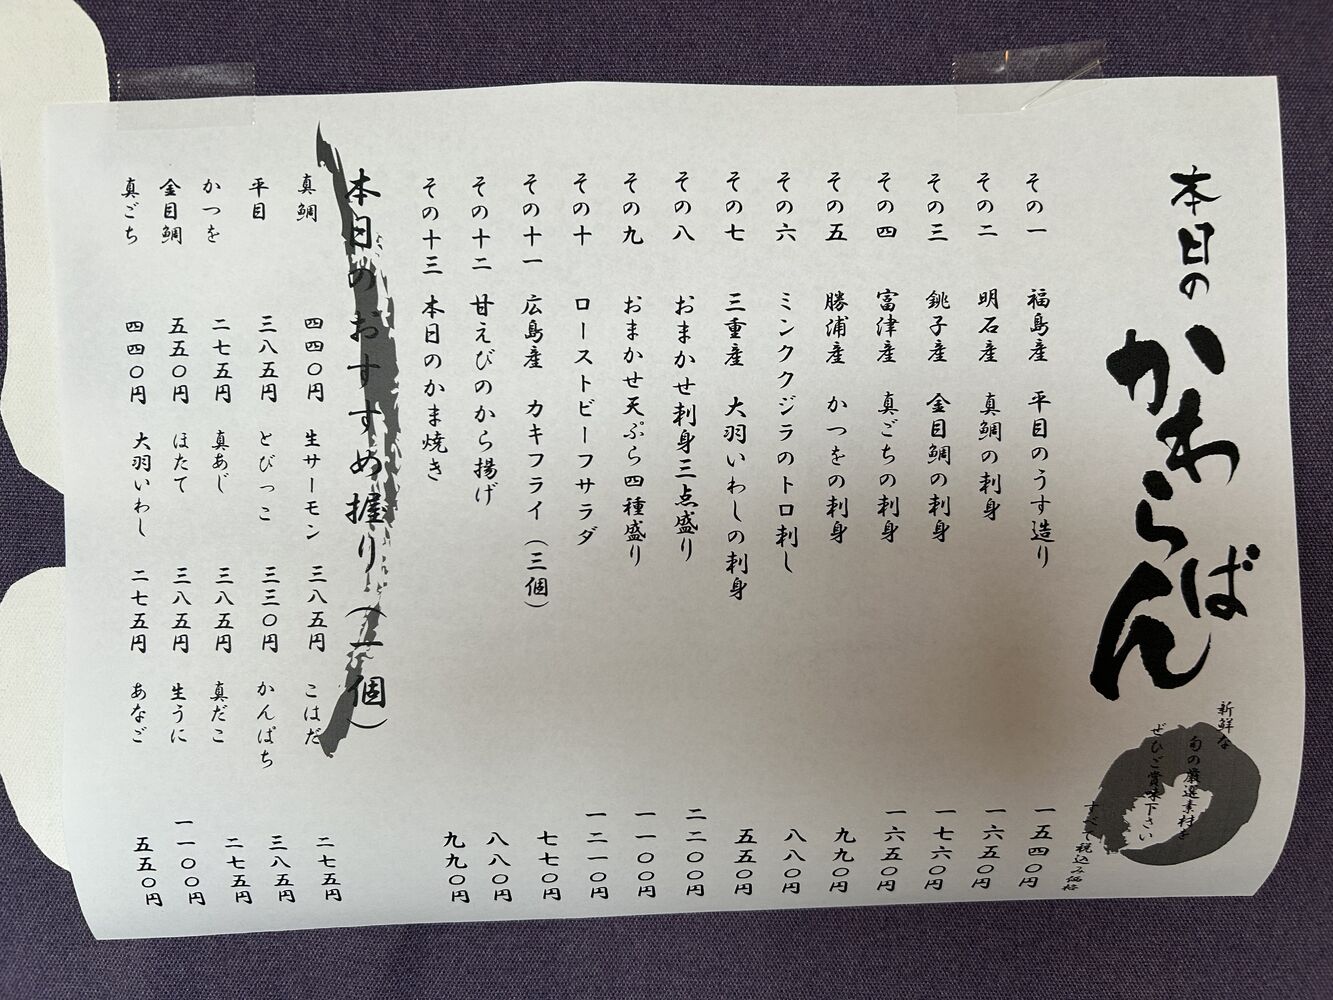 本日の
かわらばん
新鮮な
旬の厳選素材を
ぜひご賞味下さい
すべて税込み価格
その一 福島産 平目のうす造り 一五四〇円
その二 明石産 真鯛の刺身 一六五〇円
その三 銚子産 金目鯛の刺身 一七六〇円
その四 富津産 真ごちの刺身 一六五〇円
その五 勝浦産 かつをの刺身 九九〇円
その六 ミンククジラのトロ刺し 八八〇円
その七 三重産 大羽いわしの刺身 五五〇円
その八 おまかせ刺身三点盛り 二二〇〇円
その九 おまかせ天ぷら四種盛り 一一〇〇円
その十 ローストビーフサラダ 一二一〇円
その十一 広島産 カキフライ（三個） 七七〇円
その十二 甘えびのから揚げ 八八〇円
その十三 本日のかま焼き 九九〇円
本日のおすすめ握り（一個）
真鯛 四四〇円 生サーモン 三八五円 こはだ 二七五円
平目 三八五円 とびっこ 三三〇円 かんぱち 三八五円
かつを 二七五円 真あじ 三八五円 真だこ 二七五円
金目鯛 五五〇円 ほたて 三八五円 生うに 一一〇〇円
真ごち 四四〇円 大羽いわし 二七五円 あなご 五五〇円